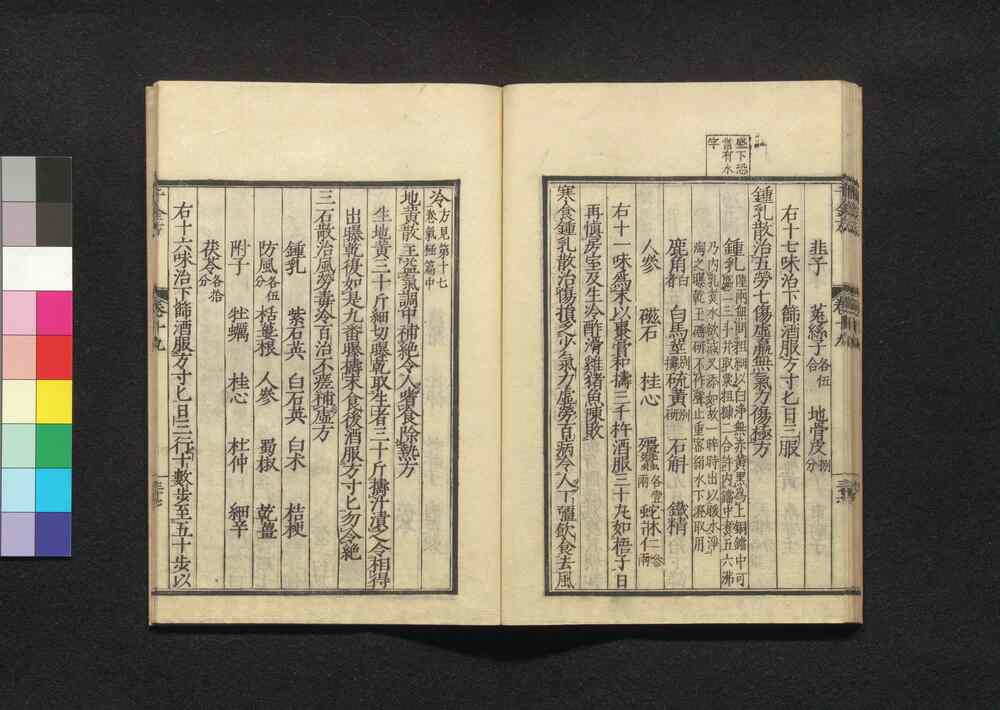 盛下恐
當有水
字
韭子　菟絲子各伍合　地骨皮捌分
右十七味治下篩酒服方寸匕日三服
鍾乳散治五勞七傷虛羸無氣力傷極方
鹿角白者　白馬莖　硫黃　石斛　鐵精
人參　磁石　桂心　殭蠶各壹兩　蛇牀仁參兩
右十一味為末以棗膏和擣三千杵酒服三十丸如梧子日
再慎房室及生冷酢滑雞豬魚陳敗
寒食鍾乳散治傷損乏少氣力虛勞百病令人下氣飲食去風
冷方見第十七
卷氣極篇中
地黃散主益氣調中補絕令人嗜食除熱方
生地黃三十斤細切曝乾取生者三十斤擣汁漬之令相得
出曝乾復如是九番曝擣末食後酒服方寸匕勿令絕
三石散治風勞毒冷百治不瘥補虛方
鍾乳　紫石英　白石英　白朮　桔梗
防風各伍分　栝蔞根　人參　蜀椒　乾薑
附子　牡蠣　桂心　杜仲　細辛
茯苓各拾分
右十六味治下篩酒服方寸匕日三行十數步至五十步以